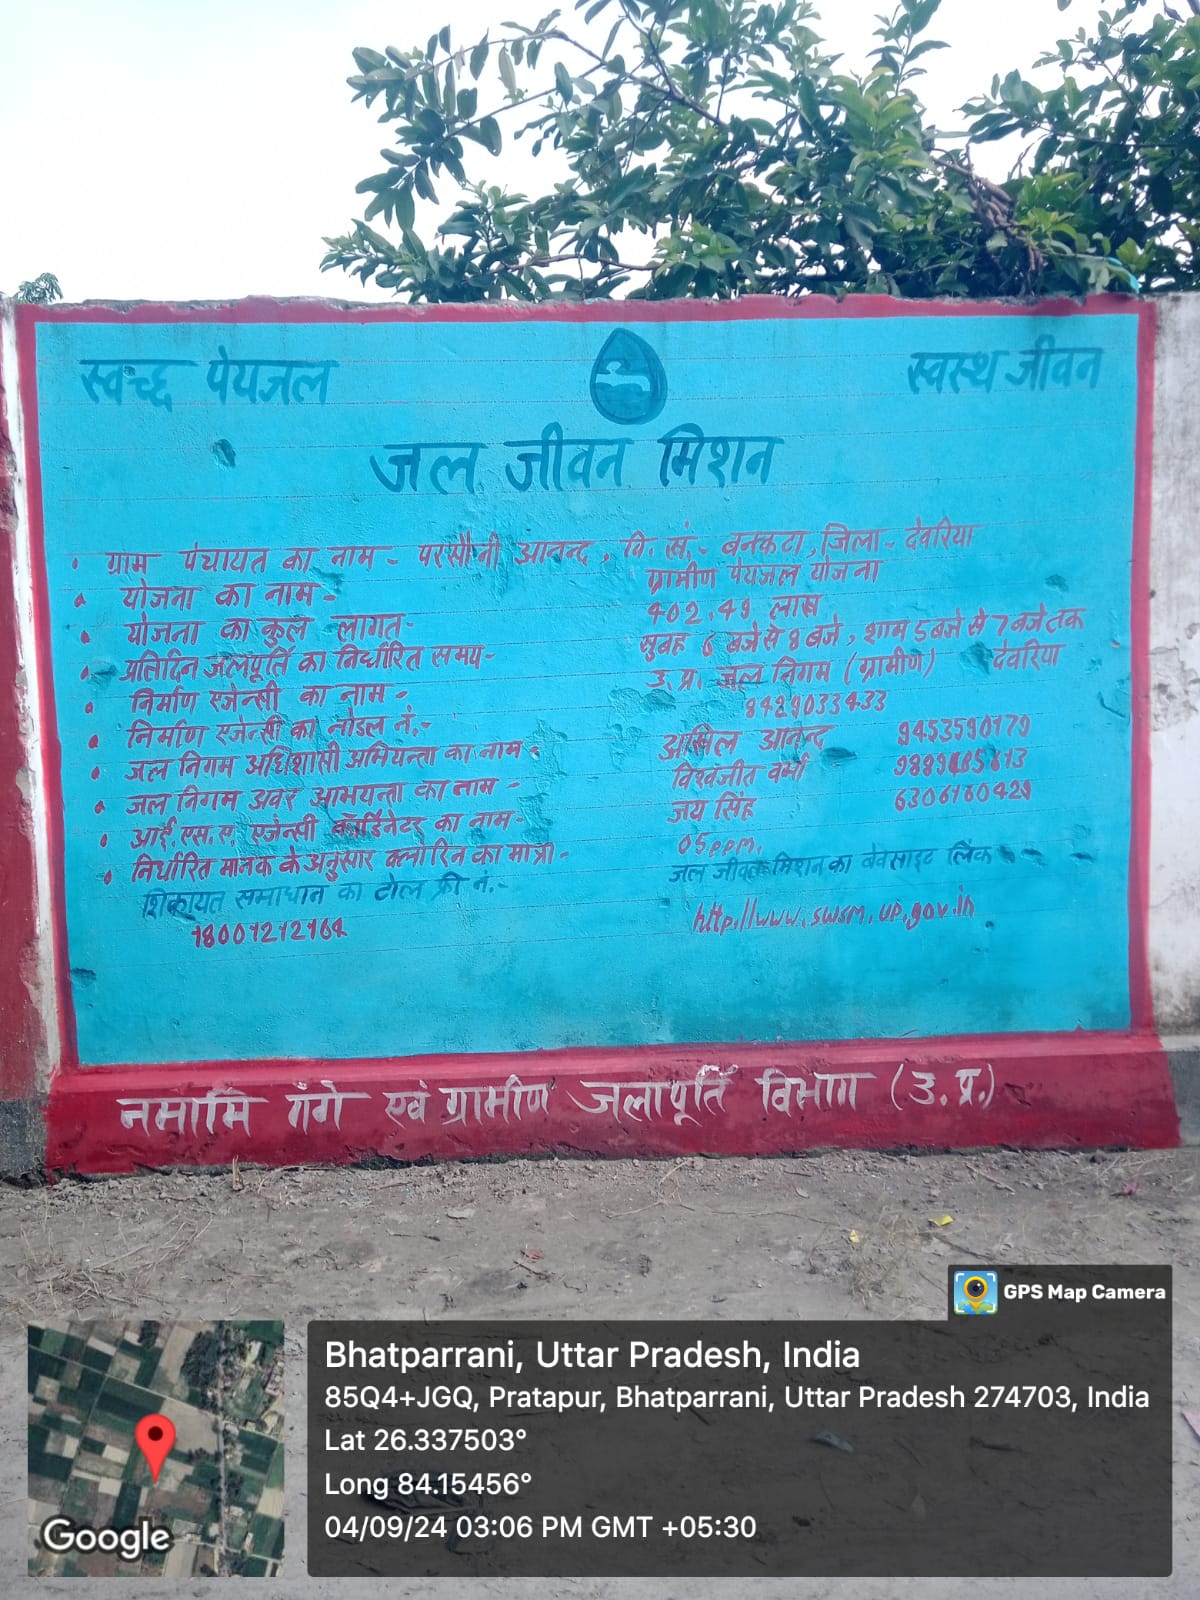 स्वच्छ पेयजल
स्वस्थ जीवन
जल जीवन मिशन
• ग्राम पंचायत का नाम - परसौनी आनन्द, वि. खं.- बनकटा, जिला- देवरिया
• योजना का नाम- ग्रामीण पेयजल योजना
• योजना का कुल लागत- 402.49 लाख
• प्रतिदिन जलपूर्ति का निर्धारित समय- सुबह 6 बजे से 8 बजे, शाम 5 बजे से 7 बजे तक
• निर्माण एजेन्सी का नाम - उ.प्र. जल निगम (ग्रामीण) देवरिया
• निर्माण एजेन्सी का नोडल नं.- 8429033433
• जल निगम अधिशासी अभियन्ता का नाम - आनन्द 9453590179
• जल निगम अवर अभियन्ता का नाम - विश्वजीत वर्मा
• आई.एस.ए. एजेन्सी कॉर्डिनेटर का नाम- जय सिंह 6306160429
• निर्धारित मानक के अनुसार क्लोरिन का मात्रा - 05ppm.
शिकायत समाधान का टोल फ्री नं.-
18001212164
जल जीवन मिशन का वेवसाइट लिंक
http://www.swsm.up.gov.in
नमामि गंगे एवं ग्रामीण जलापूर्ति विभाग (उ.प्र.)
GPS Map Camera
Bhatparrani, Uttar Pradesh, India
85Q4+JGQ, Pratapur, Bhatparrani, Uttar Pradesh 274703, India
Lat 26.337503°
Long 84.15456°
04/09/24 03:06 PM GMT +05:30
Google